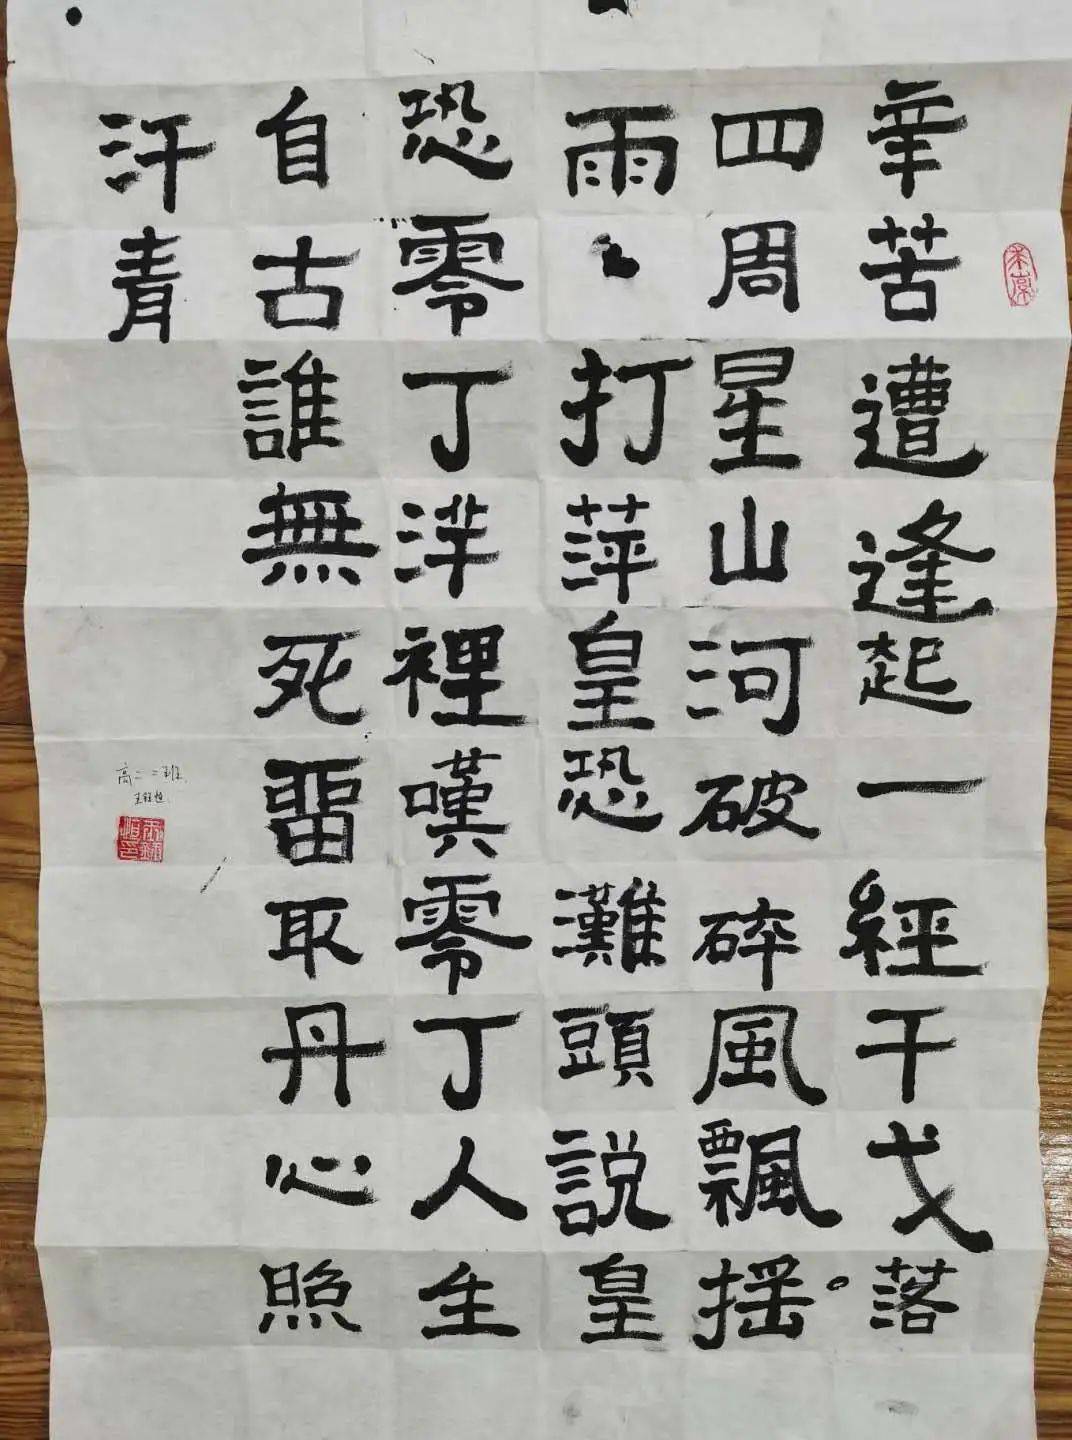 辛苦遭逢起一經干戈落
四周星山河破碎風飄揺
雨打萍皇恐灘頭説皇
恐零丁洋裡嘆零丁人生
自古誰無死畱取丹心照
汗青
高二二班